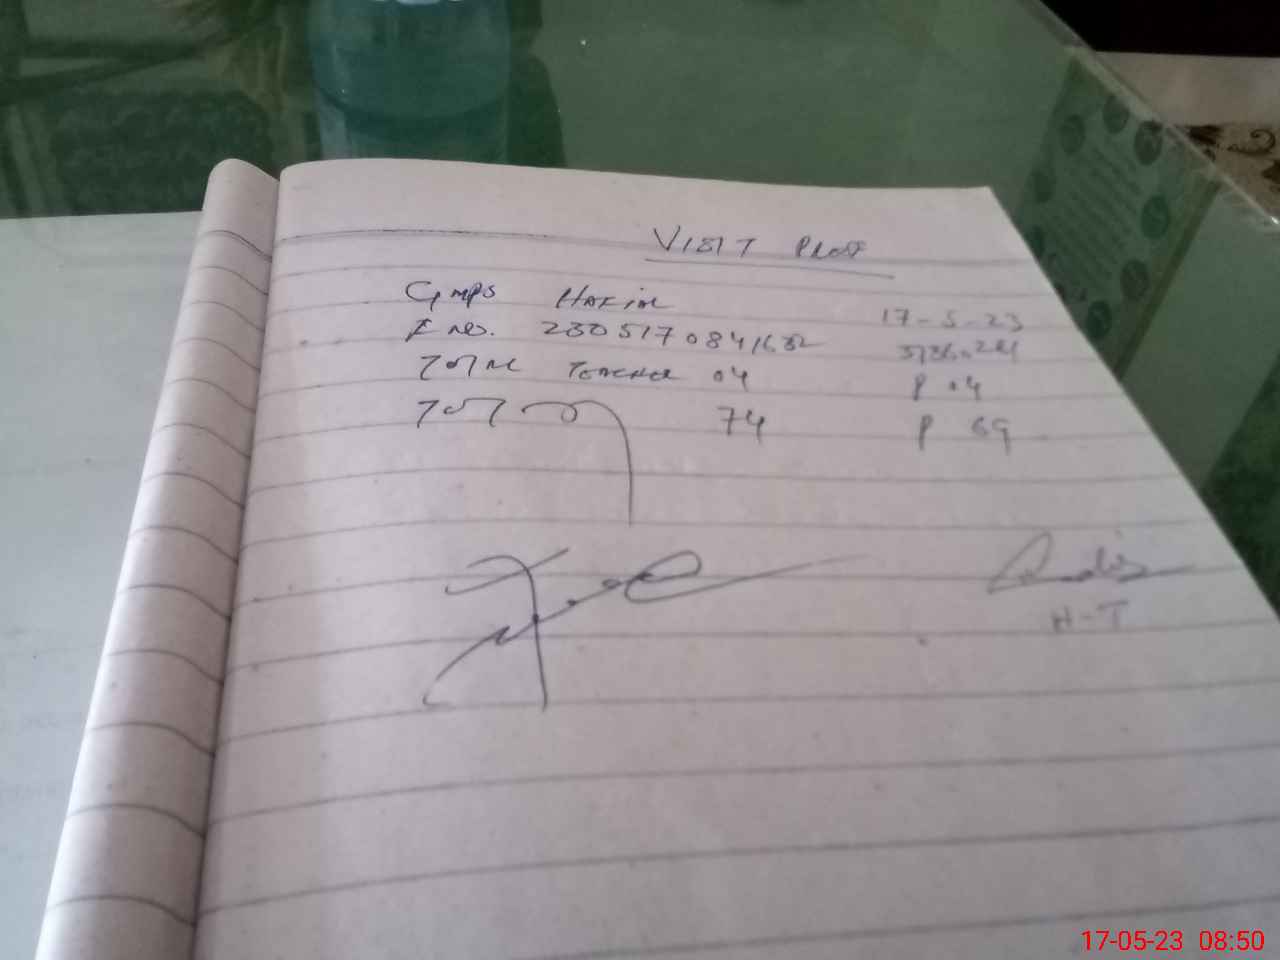 VISIT PROOF
GMPS HAKIM 17-5-23
E no. 2305170841632
TOTAL TEACHER 04 P 04
TOTAL 74 P 69
H-T
17-05-23 08:50